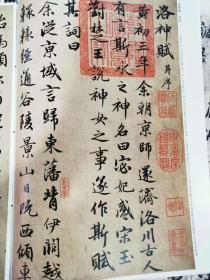 洛神賦 并序
黃初三年余朝京師還濟洛川古人
有言斯水之神名曰宓妃感宋玉
對楚王說神女之事遂作斯賦
其詞曰
余從京域言歸東藩背伊闕越
轘轅經通谷陵景山日既西傾車
殆馬煩